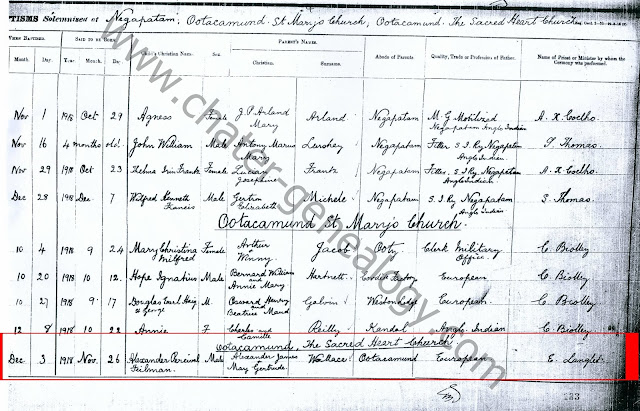 TISMS Solemnized at Negapatam; Ootacamund St. Mary's Church, Ootacamund. The Sacred Heart Church
WHEN BAPTISED. SAID TO BE BORN. Child's Christian Name. Sex. PARENT'S NAMES. Abode of Parents Quality, Trade or Profession of Father. Name of Priest or Minister by whom the Ceremony was performed.
Month Day. Year Month. Day. Christian. Surname.
Nov 1 1918 Oct 29 Agness Female J. P. Arland Mary Arland Negapatam M. G Mobilized Negapatam Anglo Indian A. X Coelho.
Nov 16 4 months old. John William Male Antony Marius Mary Negapatam Fitter, S. I. Ry Negapatam Anglo Indian S. Thomas.
Nov 29 1918 Oct 23 Female Lucian Josephine Frantz Negapatam Fitter, S. I Ry, Negapatam Anglo Indian A. X Coelho.
Dec 28 1918 Dec 7 Wilfred Kenneth Male Elizabeth Michele Negapatam S. I. Ry Negapatam Anglo Indian S. Thomas.
Ootacamund St Mary's Church.
10 4 1918 9 24 Mary Christina Milfred Female Arthur Winny Jacob Ooty Clerk Military Office. C. Biolley
10 20 1918 10 12. Hope Ignatius Male Bernard William and Annie Mary Hartnett Cordite Factory European C. Biolley
10 27 1918 9 17 Douglas Earl Haig St George M. Osward Henry Beatrice Maud Galvin Westonridge European. C Biolley
12 8 1918 10 22 Annie F Charles and Camille Reilly Kandal Anglo Indian C. Biolley
Ootacamund, The Sacred Heart Church
Dec 3 1918 Nov. 26 Alexander Percival Male Alexander James May Gertrude. Wallace Ootacamund European E. Langlet
123
www.chater-genealogy.com